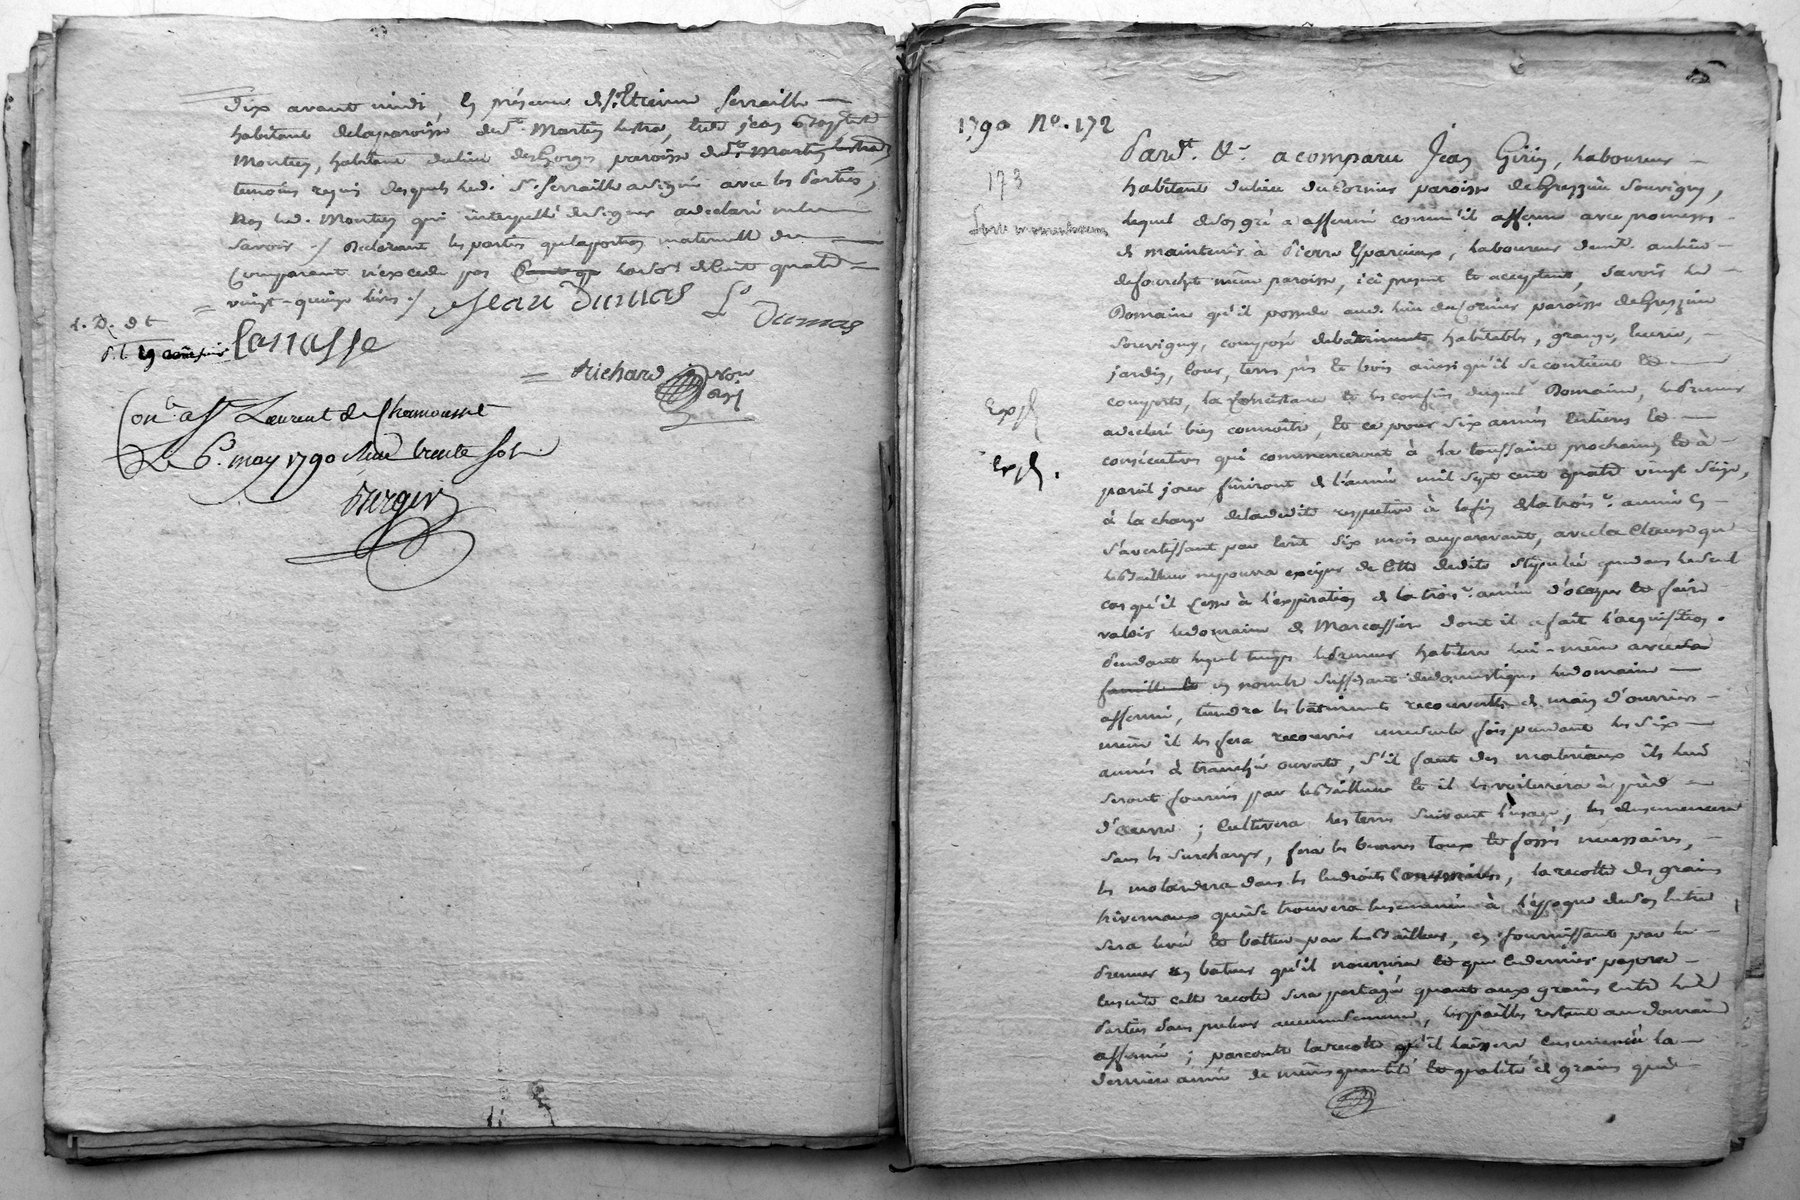 dix avant midi, en présence de s. Etienne Ferraille
habitant de la paroisse de st. Martin lestra, et de jean Baptiste
Montrey, habitant du lieu des Gorges paroisse dud. st. Martin lestra
temoins requis desquels led. sr. Ferraille a signé avec les parties,
Non led. Montrey qui interpellé de signer a declaré ne le
savoir ./ Declarant les parties que la portion maternelle du
Comparant n'excede pas la de Cent quatre
vingt-quinze livres ./
Jean Dumas L. Dumas
1. D. dt
Lanasse
Richard Nore
Conlé. à St Laurent de Chamousset
Le 6. may 1790 Reçu trente sols
Berger
1790 No. 172
173
Pardt. &c. a comparu Jean Girin, laboureur
habitant du lieu du Cornier paroisse de Grezieu Souvigny,
lequel de son gré a affermé comm'il afferme avec promesse
de maintenir à Pierre Esparcieux, laboureur demt. au lieu
de fourchet même paroisse, ici présent et acceptant, savoir le
Domaine qu'il possede aud. lieu du Cornier paroisse de Grezieu
Souvigny, composé de batiments habitables, grange, ecurie,
jardin, cour, terres prés et bois ainsi qu'il se contient et
comporte, la consistance et les confins duquel Domaine, le preneur
Expé
a declaré bien connoitre, et ce pour six années entieres et
consécutives qui commenceront à la toussaint prochaine et à
Expé.
pareil jour finiront de l'année mil sept cent quatre vingt seize,
à la charge de la dedite respective à la fin de la trois.e année en
s'avertissant par écrit six mois auparavant, avec la Clause que
le Bailleur ne pourra exciper de cette dedite stipulée que dans le seul
cas qu'il cesse à l'expiration de la trois.e année d'occuper et faire
valoir le domaine de Marcassière dont il a fait l'acquisition.
Pendant lequel temps le preneur habitera lui-même avec sa
famille et en nombre suffisant de domestiques le domaine
affermé, tiendra les bâtiments recouverts de main d'ouvrier
même il les fera recouvrir une seule fois pendant les six
années à tranchée ouverte, s'il faut des materiaux ils lui
seront fournis par le Bailleur et il les voiturera à pied
d'oeuvre ; Cultivera les terres suivant l'usage, les ensemencera
sans les surcharger, fera les bonnes toux et fossés necessaires,
les dans les endroits convenables, la recolte des grains
hivernaux qui se trouvera ensemencée à l'eppoque de son entrée
sera levée et battue par le Bailleur, en fournissant par le
preneur un bateur qu'il nourrira et que le dernier payera
ensuite cette recolte sera partagée quant aux grains entre les
Parties sans prelever aucune semence, les pailles restant au domaine
affermé ; parconte la recolte qu'il laissera ensemencée la
derniere année de même quantité et qualité de grains que